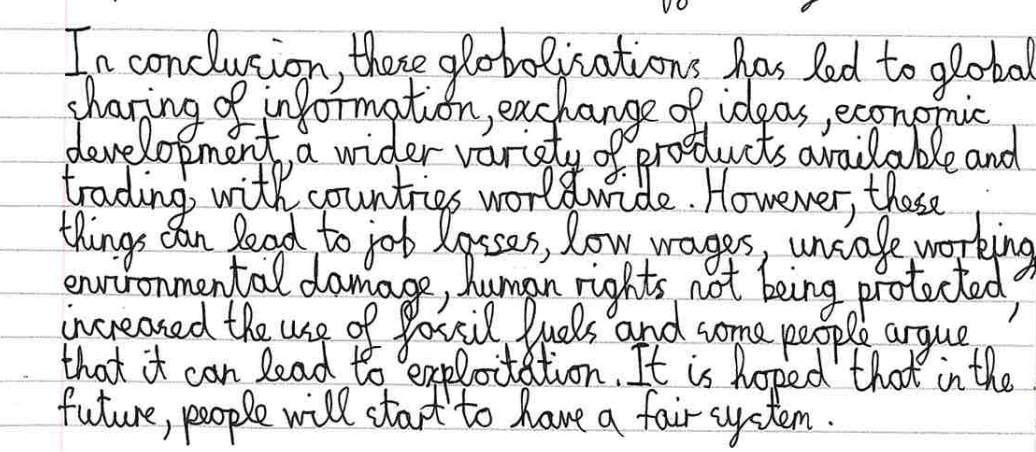 In conclusion, these globalisations has led to global
sharing of information, exchange of ideas, economic
development, a wider variety of products available and
trading with countries worldwide. However, these
things can lead to job losses, low wages, unsafe working
environmental damage, human rights not being protected,
increased the use of fossil fuels and some people argue
that it can lead to exploitation. It is hoped that in the
future, people will start to have a fair system.